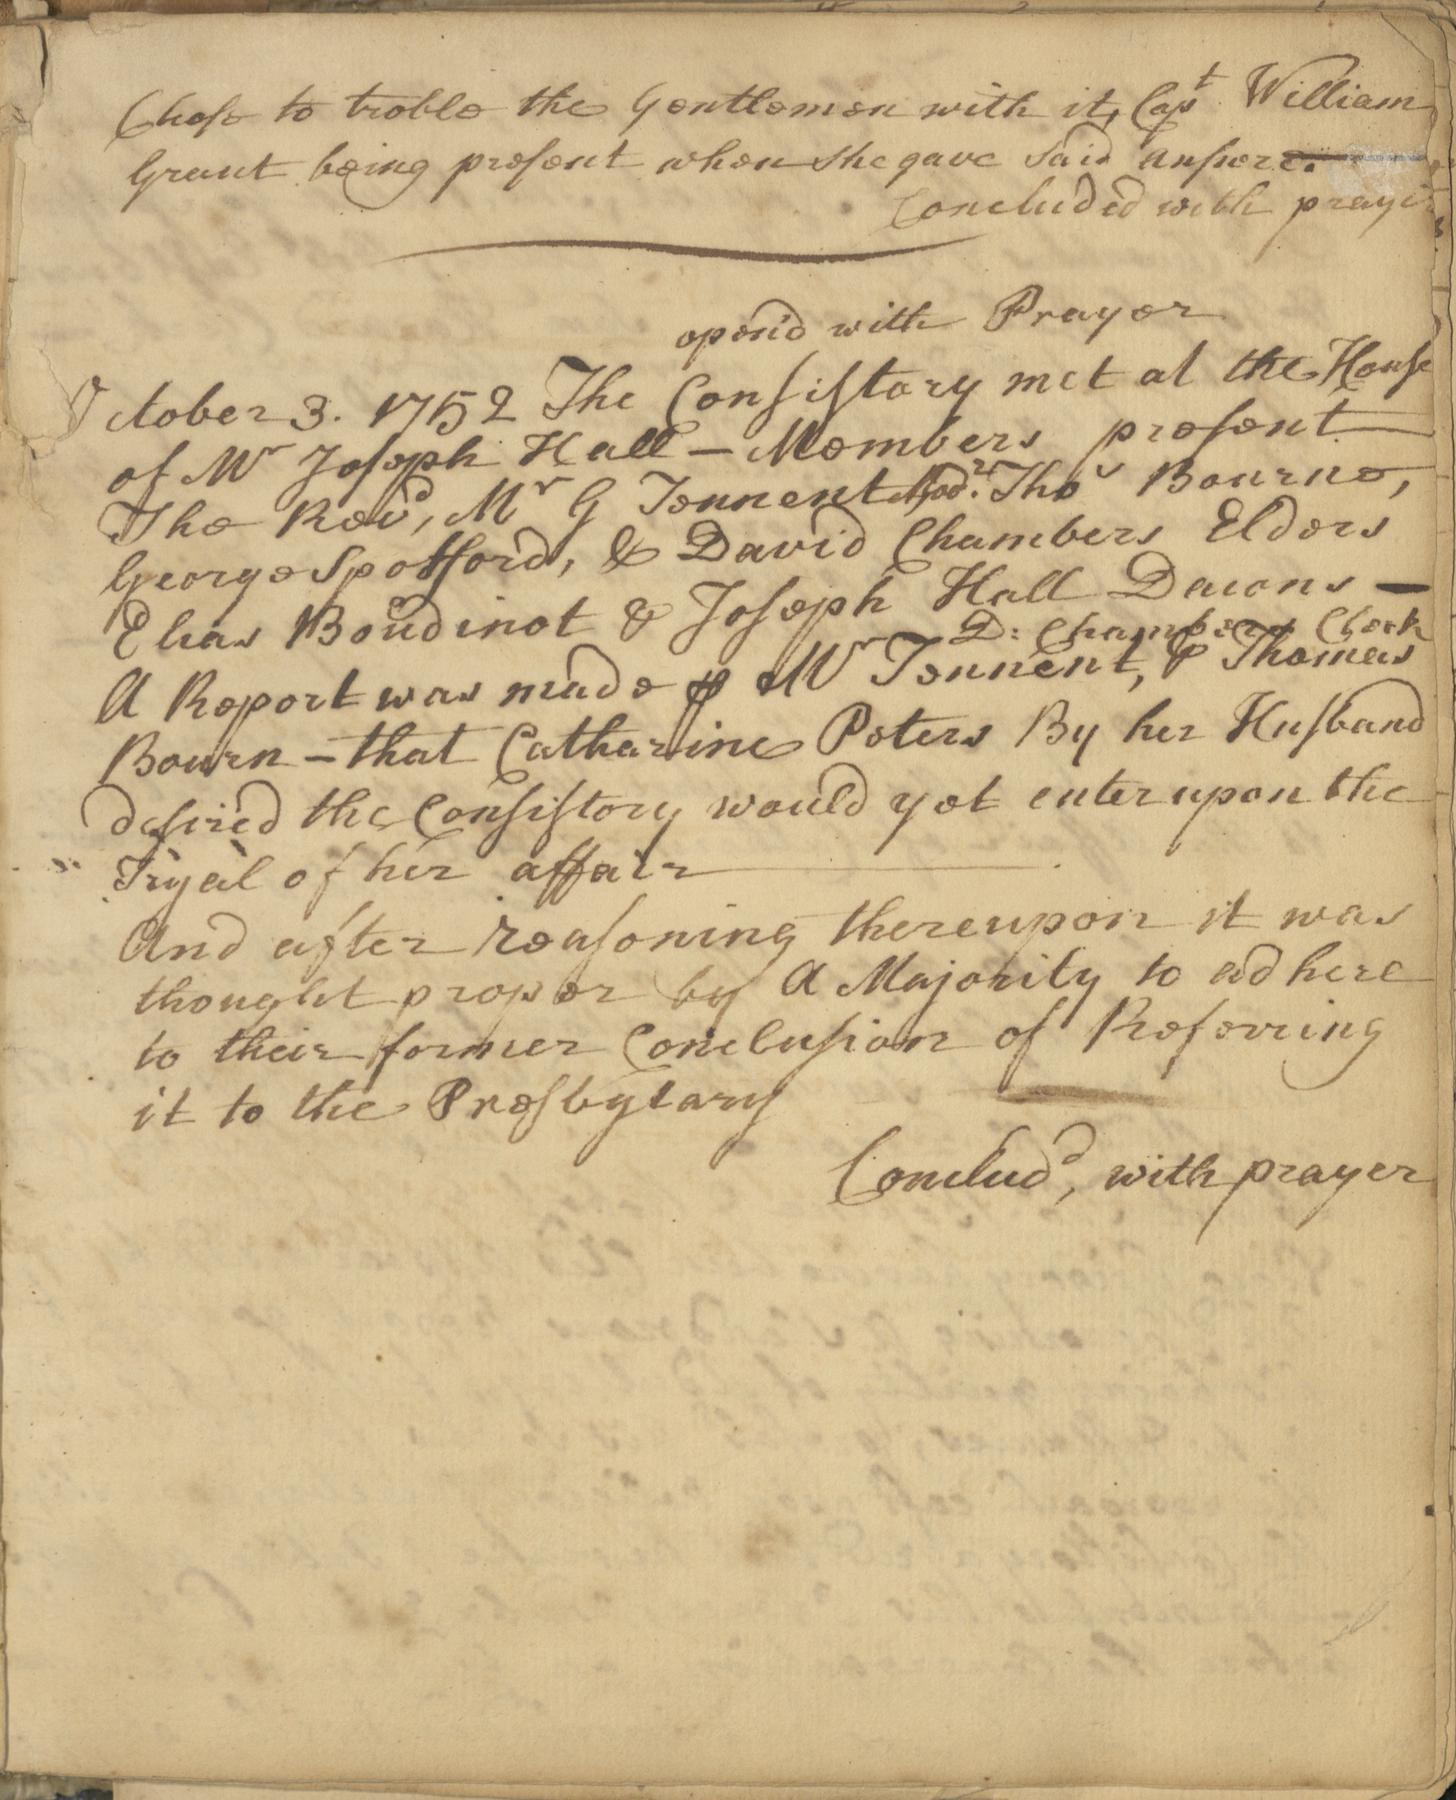 Chose to troble the Gentlemen with it, Capt William
Grant being present when she gave said answere.
Concluded with prayer
opend with Prayer
October 3. 1752 The Consistory met at the House
of Mr Joseph Hall - Members present
The Revd, Mr G Tennent Modr. Thos Bourne,
George Spofford, & David Chambers Elders
Elias Boudinot & Joseph Hall Deacons -
D: Chambers Clerk
A Report was made p Mr Tennent, & Thomas
Bourn - that Catharine Peters By her Husband
desired the Consistory would yet enter upon the
Tryal of her affair
And after reasoning thereupon it was
thought proper by A Majority to adhere
to their former Conclusion of Referring
it to the Presbytary
Concludd, with prayer